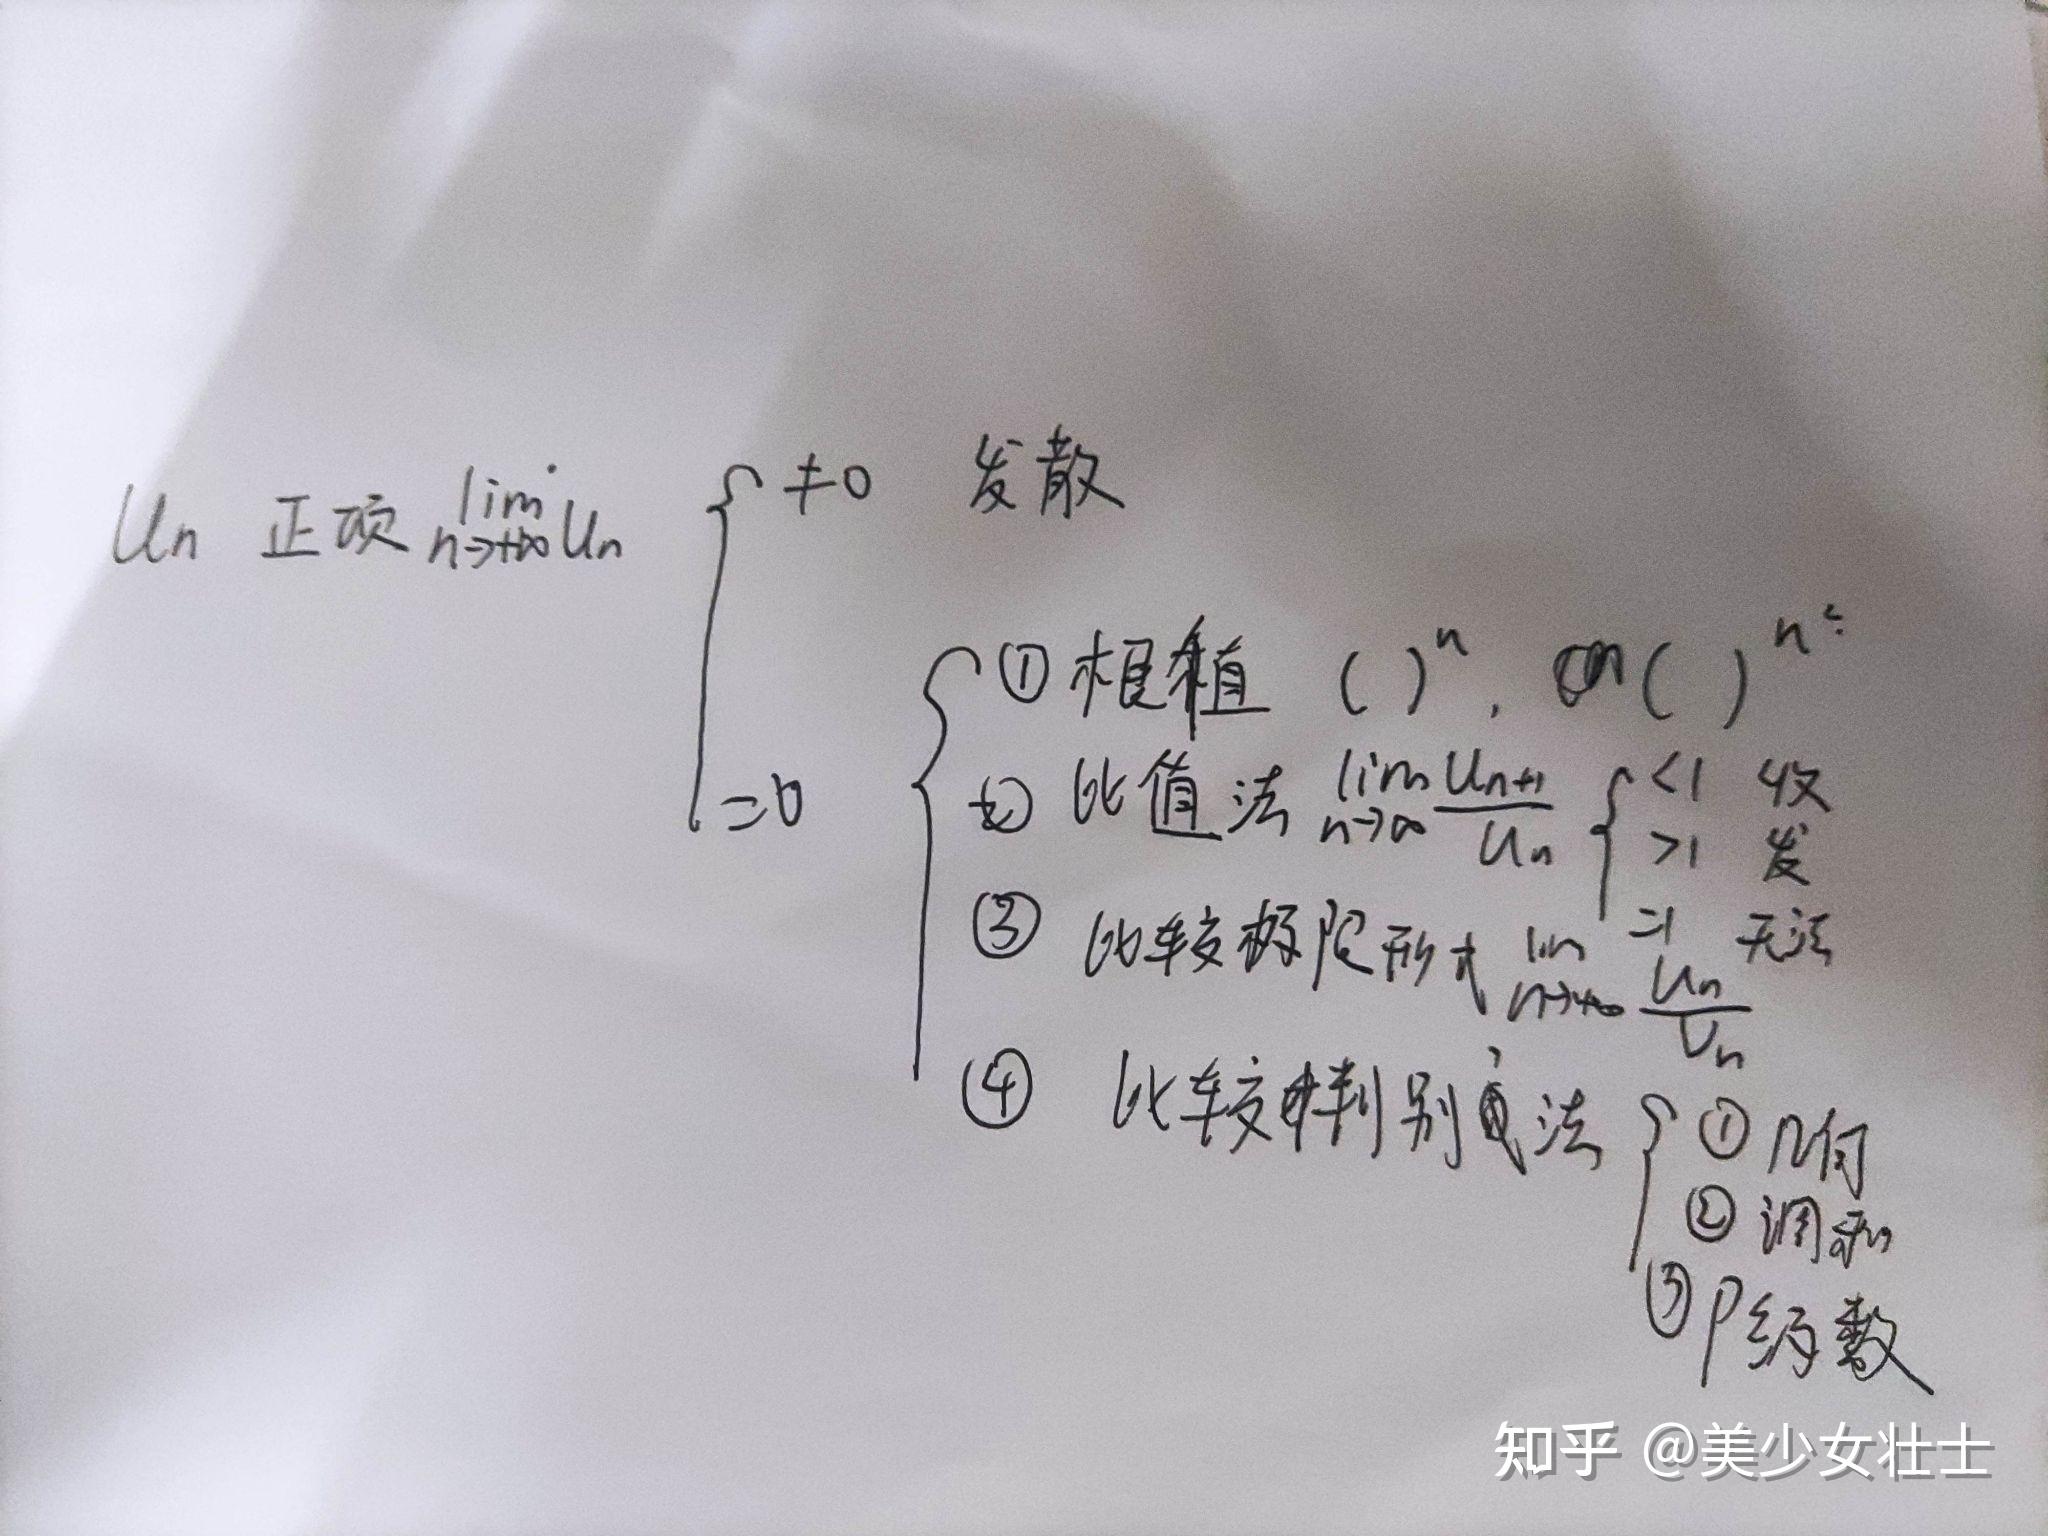 Un 正项 lim n→+∞ Un
≠0 发散
=0
① 根植 ( )ⁿ, ( )ⁿ²
② 比值法 lim n→∞ Un+1/Un
<1 收
>1 发
=1 无法
③ 比较极限形式 lim n→+∞ Un/Vn
④ 比较判别法
① 几何
② 调和
③ P级数
知乎 @美少女壮士